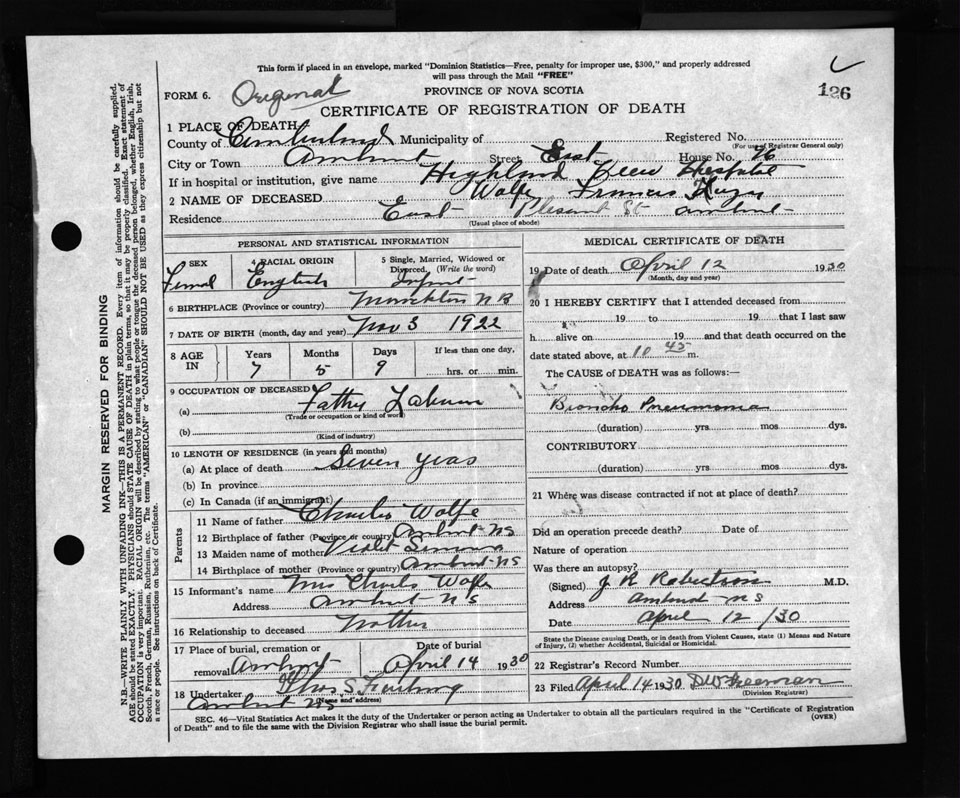 This form if placed in an envelope, marked "Dominion Statistics—Free, penalty for improper use, $300," and properly addressed
will pass through the Mail "FREE"
126
FORM 6. Original
PROVINCE OF NOVA SCOTIA
CERTIFICATE OF REGISTRATION OF DEATH
1 PLACE OF DEATH
County of Cumberland Municipality of Registered No.
(For use of Registrar General only)
City or Town Amherst Street East House No. 76
If in hospital or institution, give name Highland View Hospital
2 NAME OF DECEASED Wolfe Francis
Residence East Plesant St Amherst
(Usual place of abode)
PERSONAL AND STATISTICAL INFORMATION
3 SEX 4 RACIAL ORIGIN 5 Single, Married, Widowed or Divorced. (Write the word)
Femal English Infant
6 BIRTHPLACE (Province or country) Monckton NB
7 DATE OF BIRTH (month, day and year) Nov 3 1922
8 AGE IN Years Months Days If less than one day,
7 5 9 hrs. or min.
9 OCCUPATION OF DECEASED
(a) Father
(Trade or occupation or kind of work)
(b)
(Kind of industry)
10 LENGTH OF RESIDENCE (in years and months)
(a) At place of death Seven years
(b) In province
(c) In Canada (if an immigrant)
Parents
11 Name of father Charles Wolfe
12 Birthplace of father (Province or country) Amherst NS
13 Maiden name of mother Violet
14 Birthplace of mother (Province or country) Amherst NS
15 Informant's name Mrs Charls Wolfe
Address Amherst NS
16 Relationship to deceased Mother
17 Place of burial, cremation or removal Amherst Date of burial April 14 1930
18 Undertaker S.
Amherst NS (Name and address)
MEDICAL CERTIFICATE OF DEATH
19 Date of death April 12 1930
(Month, day and year)
20 I HEREBY CERTIFY that I attended deceased from
19 to 19 that I last saw
h alive on 19 and that death occurred on
date stated above, at 10 45 m.
The CAUSE of DEATH was as follows:—
Broncho Pneumonia
(duration) yrs mos dys.
CONTRIBUTORY
(duration) yrs mos dys.
21 Where was disease contracted if not at place of death?
Did an operation precede death? Date of
Nature of operation
Was there an autopsy?
(Signed) J R Robertson M.D.
Address Amherst NS
Date April 12 /30
State the Disease causing Death, or in death from Violent Causes, state (1) Means and Nature
of Injury, (2) whether Accidental, Suicidal or Homicidal.
22 Registrar's Record Number
23 Filed April 14 1930 Freeman
(Division Registrar)
SEC. 46—Vital Statistics Act makes it the duty of the Undertaker or person acting as Undertaker to obtain all the particulars required in the "Certificate of Registration
of Death" and to file the same with the Division Registrar who shall issue the burial permit.
(OVER)
MARGIN RESERVED FOR BINDING
N.B.—WRITE PLAINLY WITH UNFADING INK—THIS IS A PERMANENT RECORD. Every item of information should be carefully supplied.
AGE should be stated EXACTLY. PHYSICIANS should STATE CAUSE OF DEATH in plain terms, so that it may be properly classified. Exact statement of
OCCUPATION is very important. RACIAL ORIGIN will be described by stating to what people or tongue the deceased person belonged, whether English, Irish,
Scotch, French, German, Russian, Ruthenian, etc. The terms "AMERICAN" or "CANADIAN" SHOULD NOT BE USED as they express citizenship but not
a race or people. See instructions on back of Certificate.